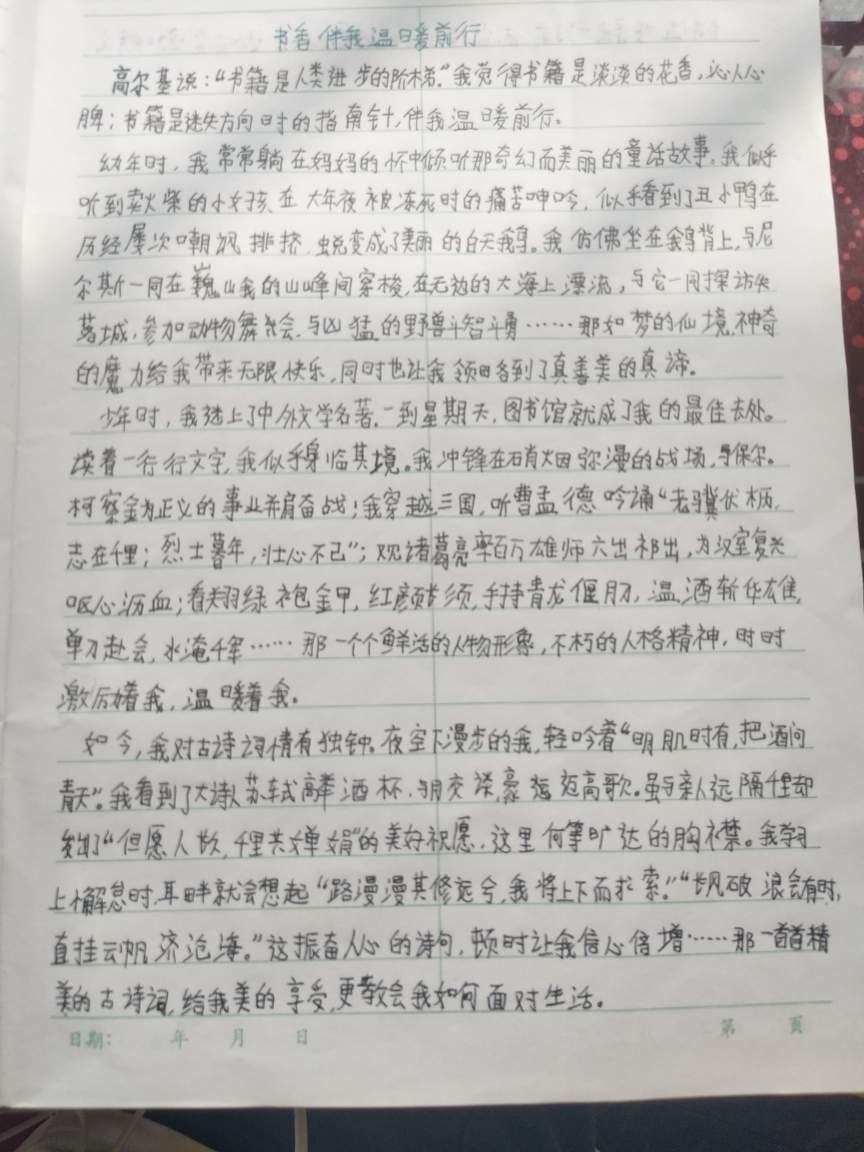 书香伴我温暖前行
高尔基说：“书籍是人类进步的阶梯。”我觉得书籍是淡淡的花香，沁人心
脾；书籍是迷失方向时的指南针，伴我温暖前行。
幼年时，我常常躺在妈妈的怀中倾听那奇幻而美丽的童话故事。我似乎
听到卖火柴的小女孩在大年夜被冻死时的痛苦呻吟，似乎看到了丑小鸭在
历经屡次嘲讽排挤，蜕变成了美丽的白天鹅。我仿佛坐在鹅背上，与尼
尔斯一同在巍峨的山峰间穿梭，在无边的大海上漂流，与它一同探访失
落城，参加动物舞会，与凶猛的野兽斗智斗勇……那如梦的仙境，神奇
的魔力给我带来无限快乐，同时也让我领略到了真善美的真谛。
少年时，我迷上了中外文学名著。一到星期天，图书馆就成了我的最佳去处。
读着一行行文字，我似乎身临其境。我冲锋在硝烟弥漫的战场，与保尔。
柯察金为正义的事业并肩奋战；我穿越三国，听曹孟德吟诵“老骥伏枥，
志在千里；烈士暮年，壮心不已”；观诸葛亮率百万雄师六出祁出，为汉室复兴
呕心沥血；看关羽绿袍金甲，红颜长须，手持青龙偃月刀，温酒斩华雄，
单刀赴会，水淹七军……那一个个鲜活的人物形象，不朽的人格精神，时时
激励着我，温暖着我。
如今，我对古诗词情有独钟。夜空下漫步的我，轻吟着“明月几时有，把酒问
青天”。我看到了大诗人苏轼高举酒杯，与月交谈，豪迈高歌。虽与亲人远隔千里却
发出了“但愿人长久，千里共婵娟”的美好祝愿，这里何等旷达的胸襟。我学习
上懈怠时，耳畔就会想起“路漫漫其修远兮，我将上下而求索。”“长风破浪会有时，
直挂云帆济沧海。”这振奋人心的诗句，顿时让我信心倍增……那一首首精
美的古诗词，给我美的享受，更教会我如何面对生活。
日期： 年 月 日 第 页